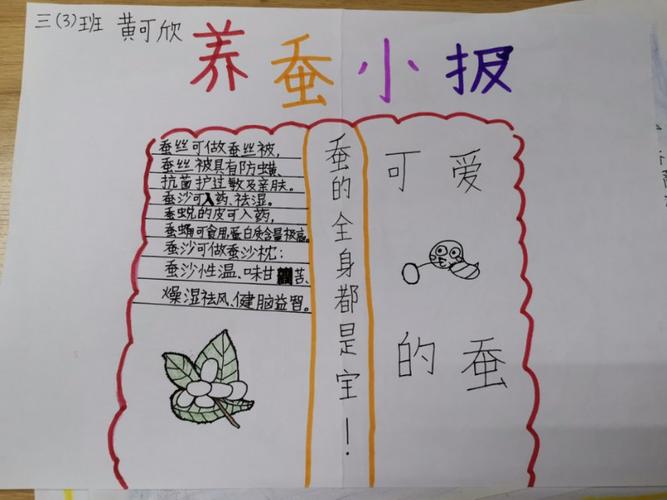 三(3)班 黄可欣
养蚕小报
蚕丝可做蚕丝被,
蚕丝被具有防螨、
抗菌护过敏及亲肤。
蚕沙可入药、祛湿。
蚕蜕的皮可入药,
蚕蛹可食用,蛋白质含量极高。
蚕沙可做蚕沙枕;
蚕沙性温、味甘 苦、
燥湿祛风、健脑益智。
蚕的全身都是宝!
可爱
的蚕